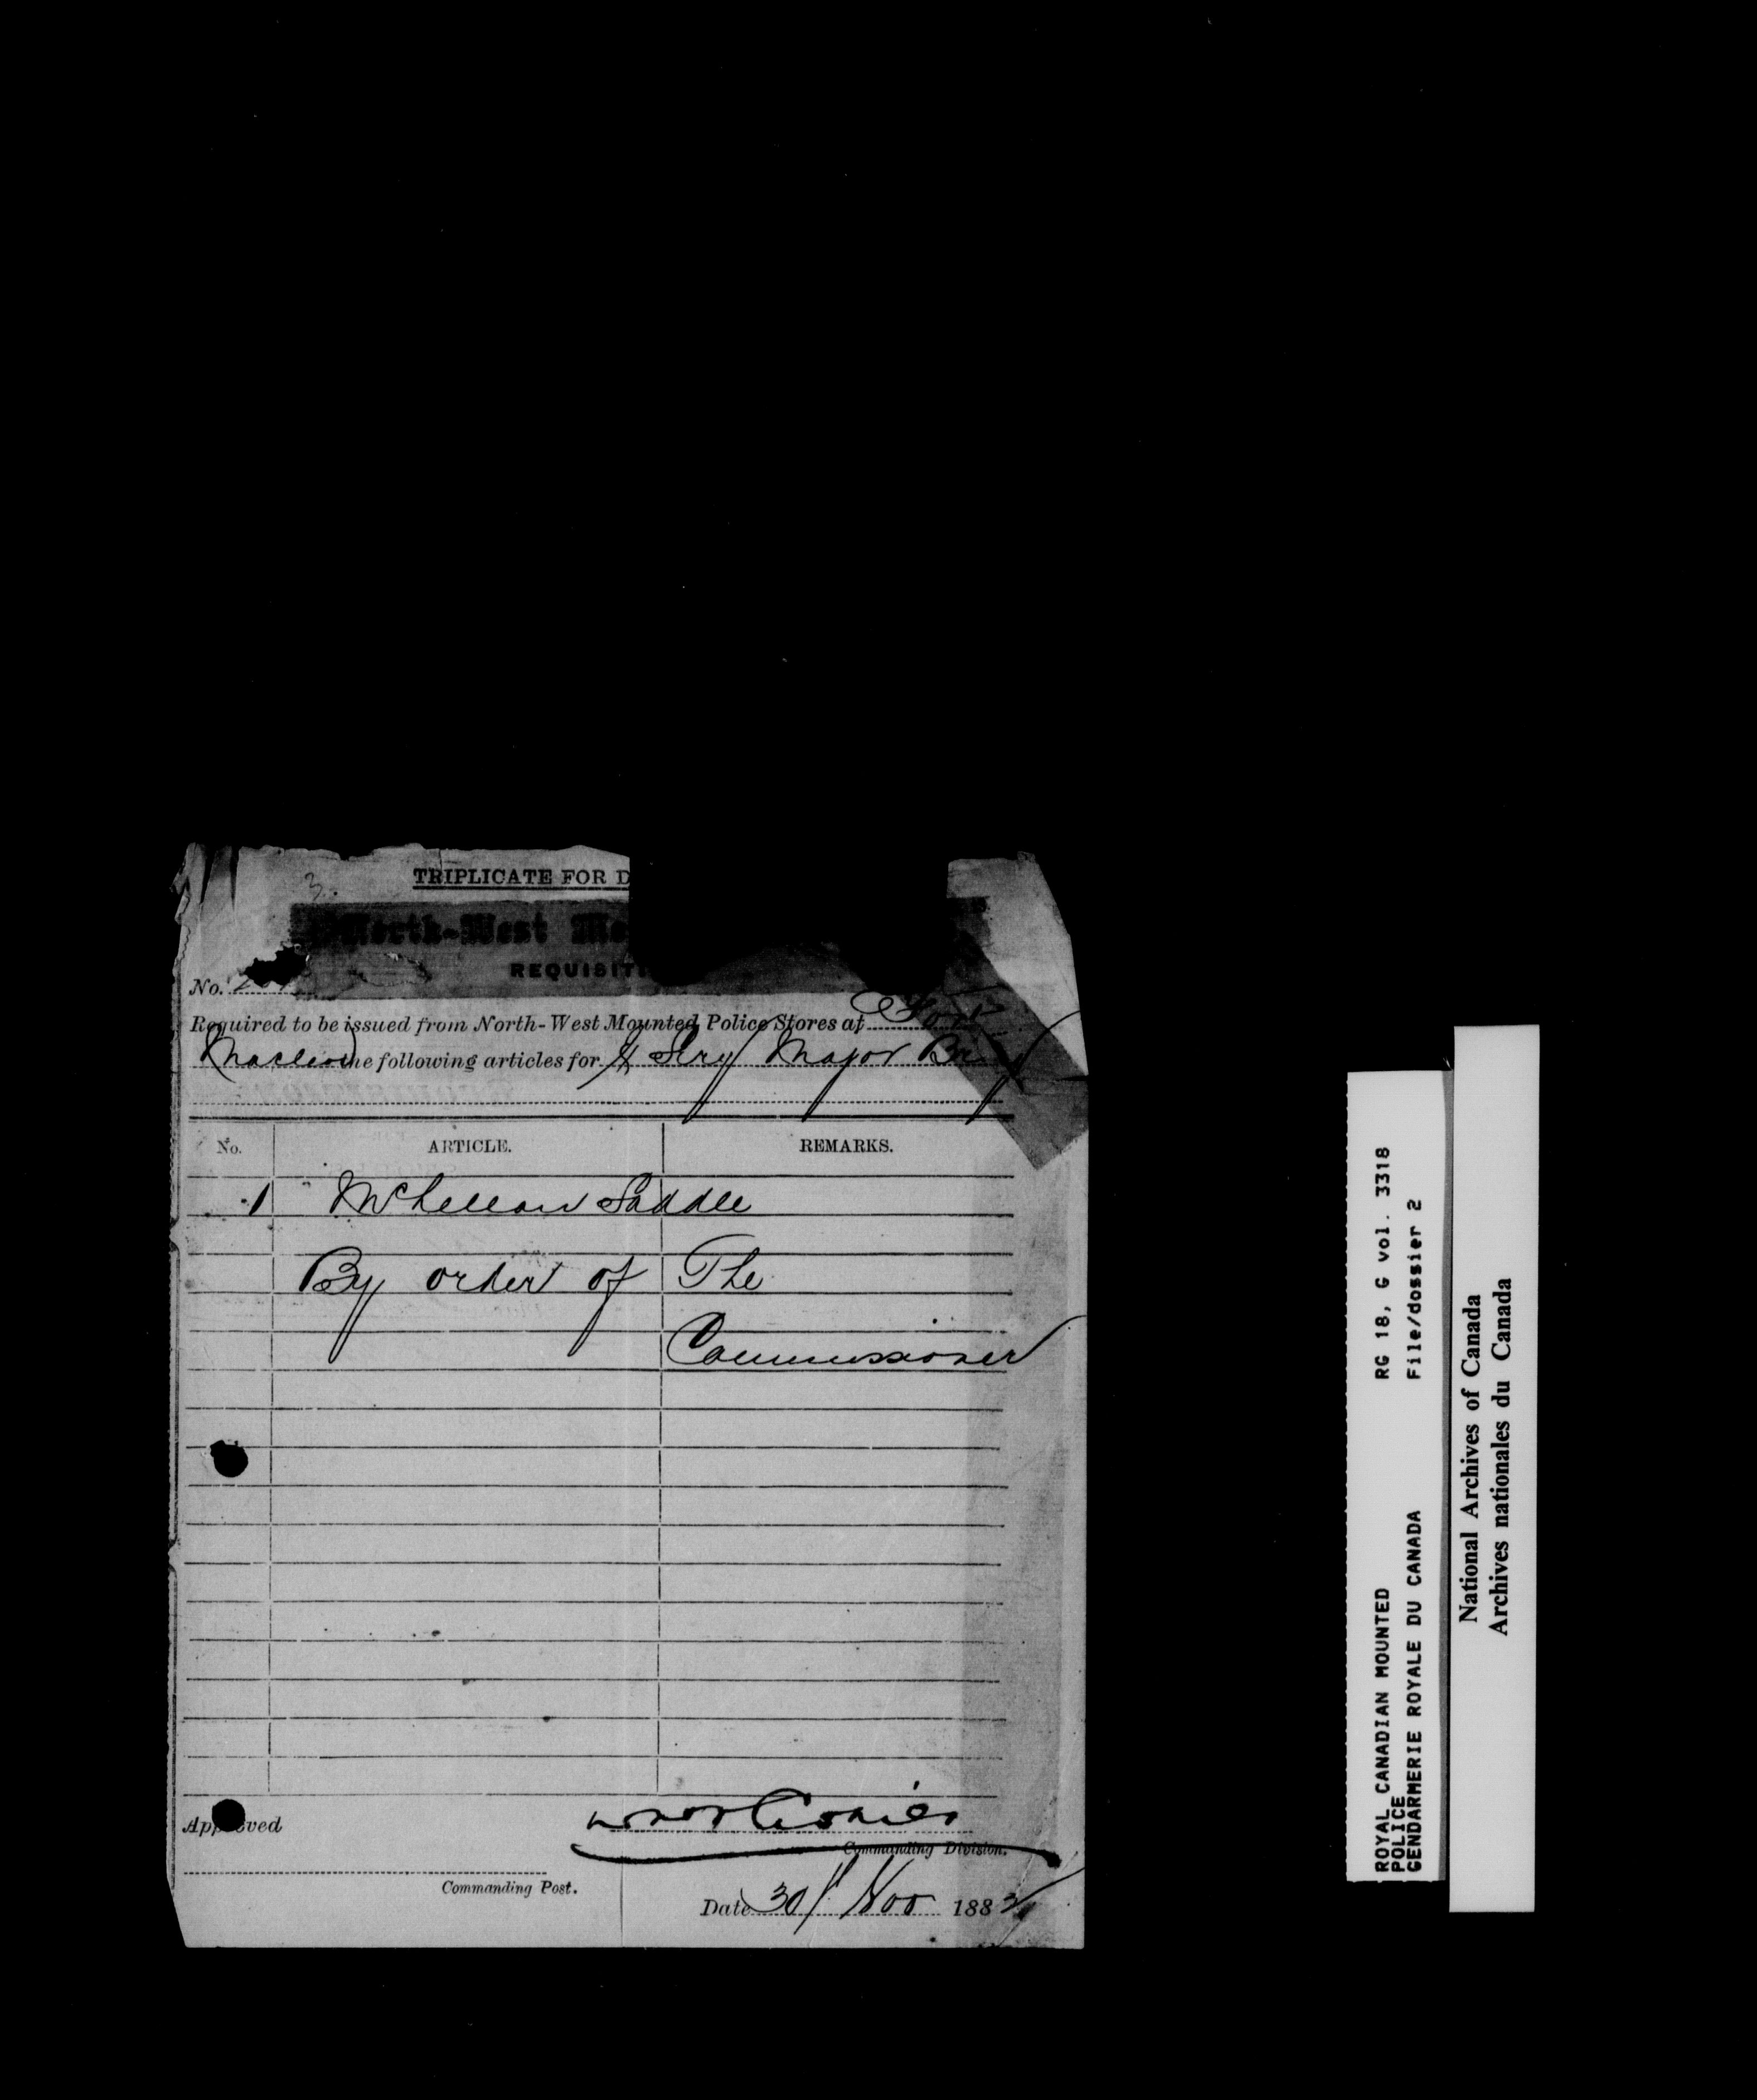 3.
TRIPLICATE FOR D
North-West Mo
REQUISITI
No.
Required to be issued from North-West Mounted Police Stores at Fort
Macleod the following articles for Sergt Major
No. ARTICLE. REMARKS.
1 McLellan Saddle
By order of The
Commissioner
Approved
Commanding Division.
Commanding Post.
Date 30/ Nov 188
ROYAL CANADIAN MOUNTED RG 18, G vol. 3318
POLICE
GENDARMERIE ROYALE DU CANADA File/dossier 2
National Archives of Canada
Archives nationales du Canada